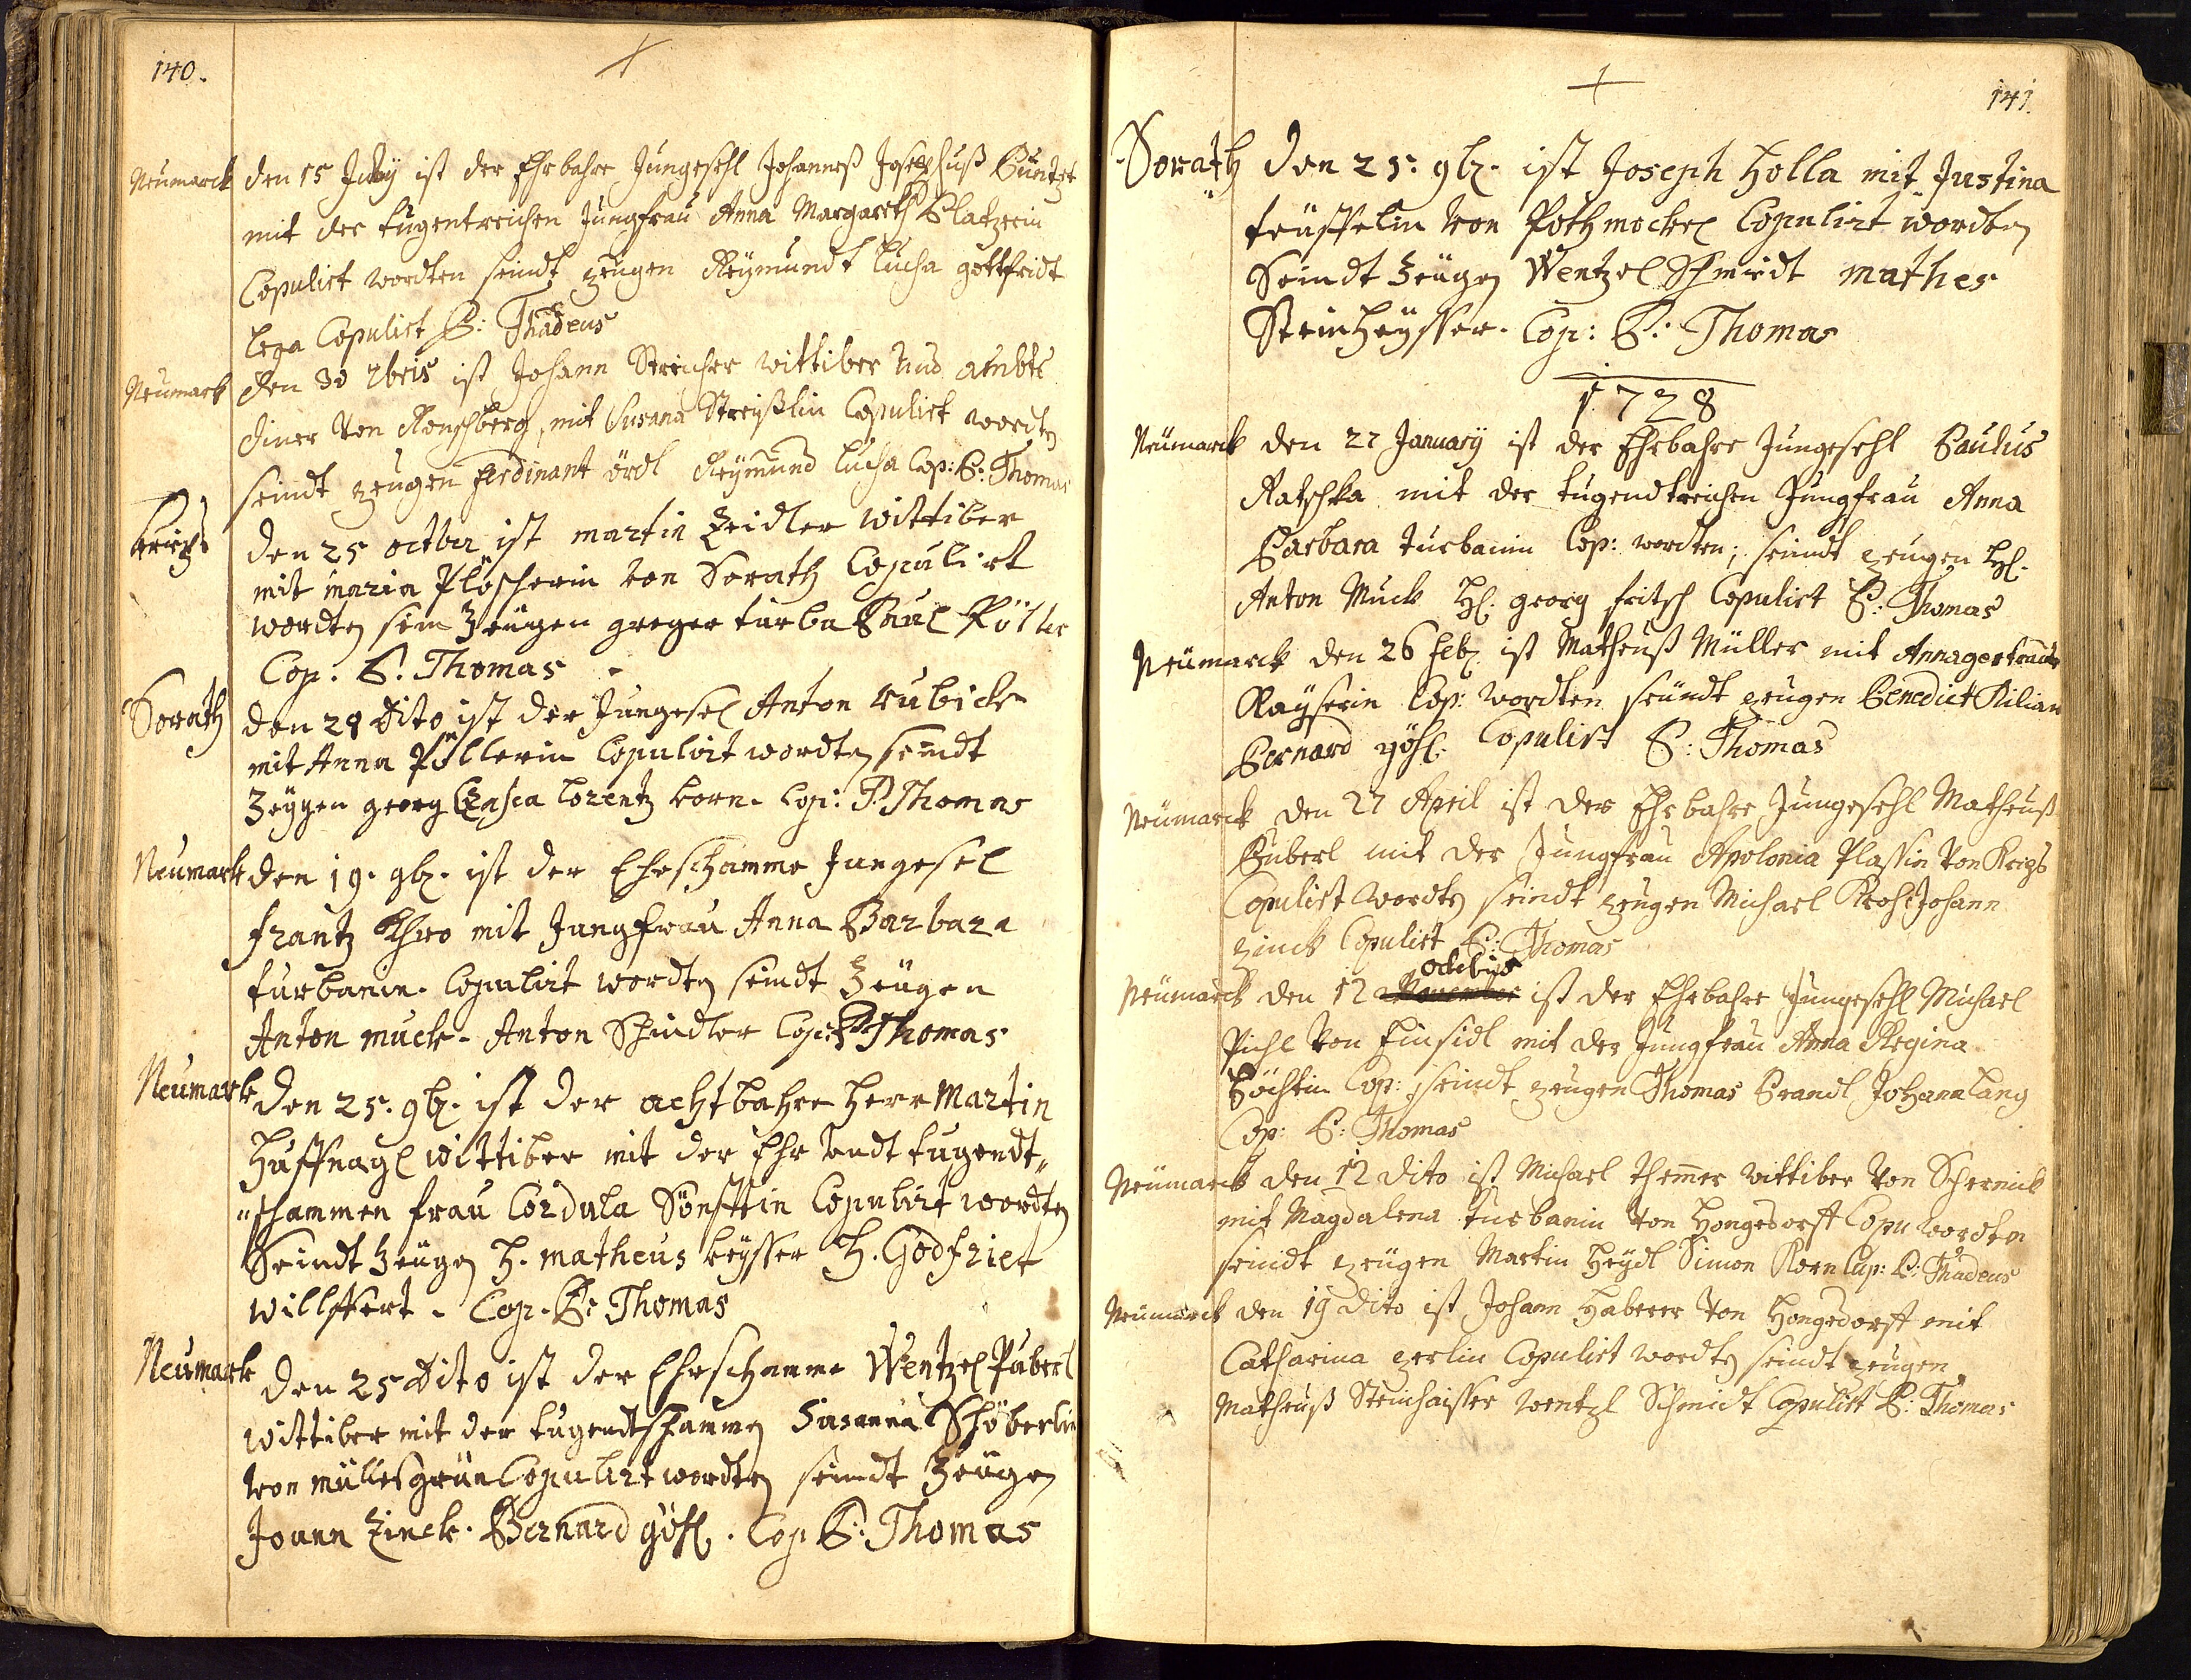 140.
Neumarck den 15 July ist der Ehrbahre Jungesehl Johanneß Josephuß Buntzet
mit der tugentreichen Jungfrau Anna Margareth Platzerin
Copulirt wordten seindt zeugen Reymundt Lucha gottfridt
Copulirt P: Thadeus
Neumark den 30 ist Johann Streicher wittiber und ambts
diner von Ronschberg, mit Susana Copulirt wordten
seindt zeugen Ferdinant ördl Reymund Lucha Cop: P: Thomas
den 25 octber ist martin Zeidler wittiber
mit maria Plöscherin von Sorath Copulirt
wordten sein Zeugen greger turba Paul
Cop. P. Thomas
Sorath den 28 Dito ist der Jungesel Anton rubick
mit Anna Püllerin Copulirt wordten seindt
Zeygen georg Lorentz korn. Cop: P. Thomas
Neumark den 19. 9b. ist der Ehrschamme Jungesel
frantz mit Jungfrau Anna Barbara
turbanin. Copulirt wordten seindt Zeugen
Anton muck. Anton Schindler Cop: P Thomas
Neumark den 25. 9b. ist der achtbahre Herr Martin
Huffnagl wittiber mit der Ehr undt tugendt„
„schammen frau Cordula Copulirt wordten
Seindt Zeugen H. matheus keysser H. Godfriet
willffert. Cop. P: Thomas
Neumark den 25 Dito ist der Ehrschamme Wentzel Puberl
wittiber mit der tugendtschammen Susanna Schöberlin
von müllesgrün Copulirt wordten seindt Zeugen
Joann Zinck. Bernard göhl. Cop P: Thomas
141.
Sorath den 25. 9b. ist Joseph Holla mit Justina
teuffelin von Copulirt wordten
Seindt Zeugen Wentzel Schmidt mathes
Steinheysser. Cop: P: Thomas
1728
Neumarck den 27 January ist der Ehrbahre Jungesehl Paulus
Ratschka mit der tugendtreichen Jungfrau Anna
Barbara turbanin Cop: wordten; seindt zeugen H.
Anton Muck H. georg fritsch Copulirt P: Thomas
Neumarck den 26 feb ist Matheuß Müller mit Annagertraut
Kayserin Cop: wordten seindt zeugen Benedict Kilian
Bernard göhl: Copulirt P: Thomas
Neumarck den 27 April ist der Ehrbahre Jungesehl Matheuß
Buberl mit der Jungfrau Apolonia Plassin von Krigs
Copulirt wordten seindt zeugen Michael Johann
zinck Copulirt P: Thomas
Neumarck den 12 octobris ist der Ehrbahre Jungesehl Michael
Pichl von Einsidl mit der Jungfrau Anna Regina
Cop: seindt zeugen Thomas Brandl Johann Lang
Cop: P: Thomas
Neumarck den 12 dito ist Michael themer wittiber von
mit Magdalena turbanin von Hongsdorff Copu wordten
seindt zeugen Martin Heydl Simon Korn Cup: P: Thadeus
Neumarck den 19 dito ist Johann Haberer von Hongsdorff mit
Catharina zerlin Copulirt wordten seindt zeugen
Matheuß Steinhaisser wentzl Schmidt Copulirt P: Thomas